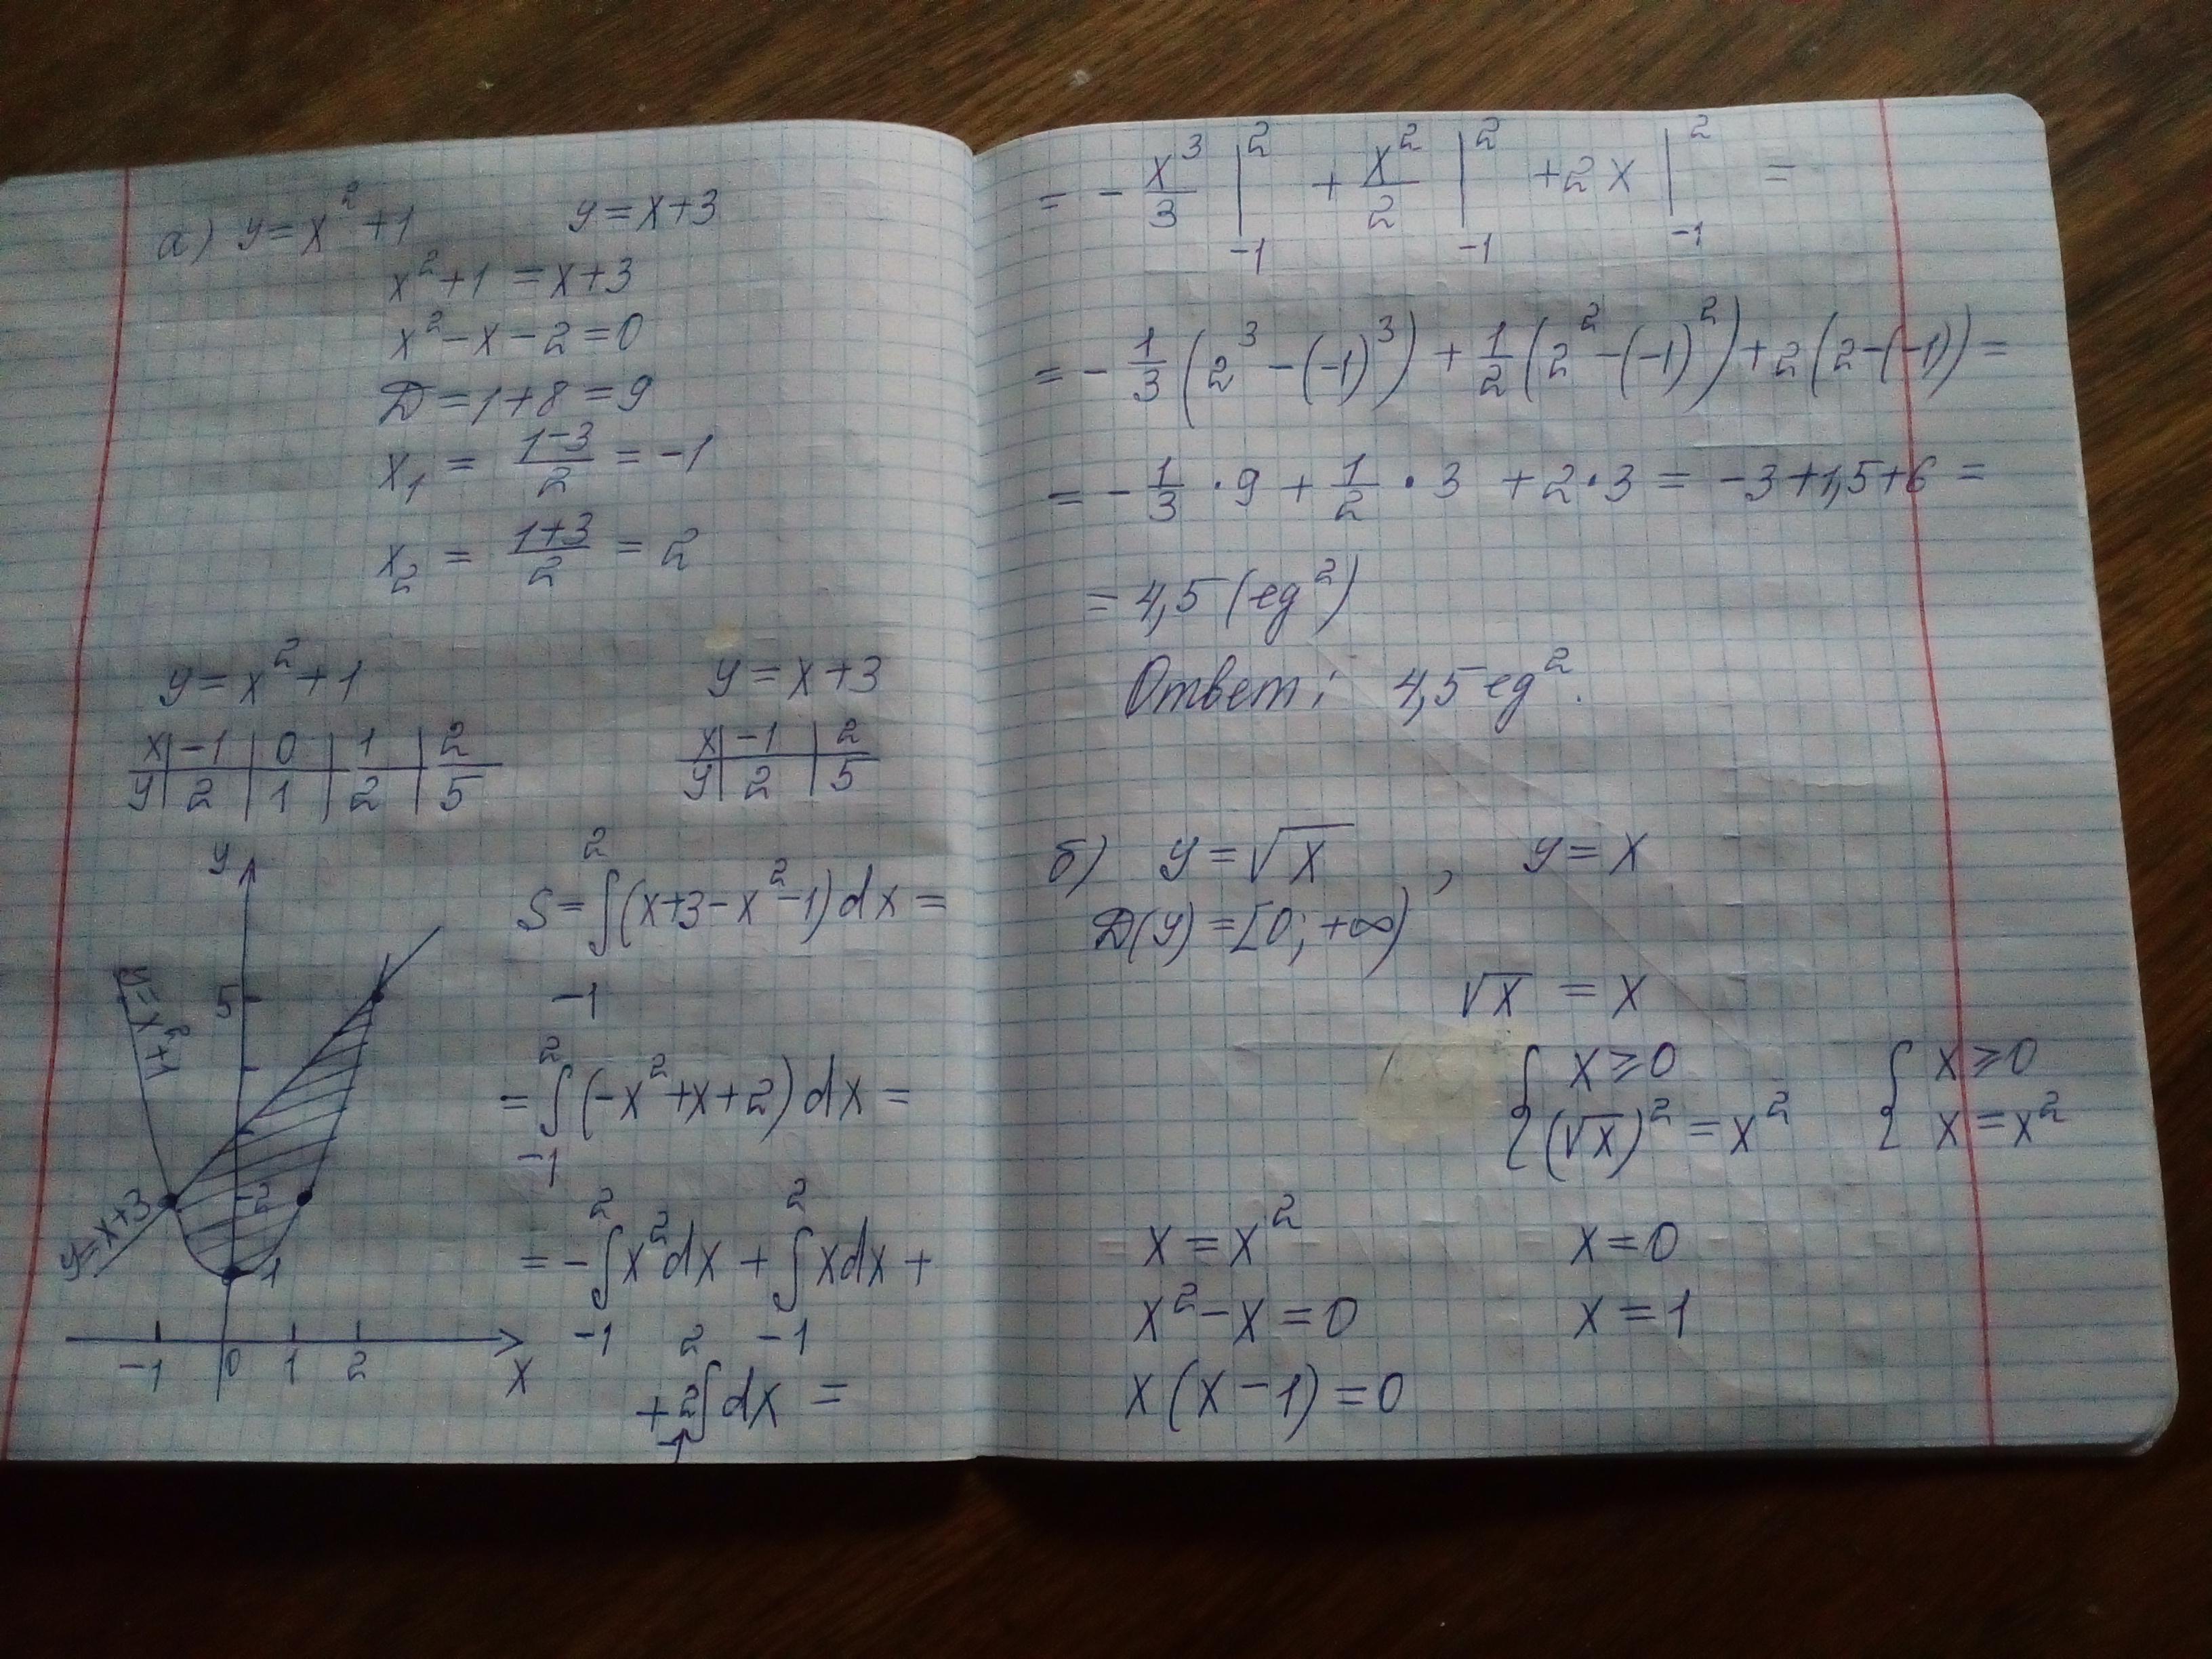 а) y=x²+1 y=x+3
x²+1=x+3
x²-x-2=0
D=1+8=9
x₁ = (1-3)/2 = -1
x₂ = (1+3)/2 = 2
y=x²+1 y=x+3
x | -1 | 0 | 1 | 2
y | 2 | 1 | 2 | 5
x | -1 | 2
y | 2 | 5
y
5
2
1
-1 0 1 2 x
y=x²+1
y=x+3
S=∫₋₁²(x+3-x²-1)dx=
=∫₋₁²(-x²+x+2)dx=
=-∫₋₁²x²dx+∫₋₁²xdx+
+2∫₋₁²dx=
= -x³/3 |₋₁² + x²/2 |₋₁² +2x |₋₁² =
= -1/3(2³-(-1)³)+1/2(2²-(-1)²)+2(2-(-1))=
= -1/3·9+1/2·3+2·3=-3+1,5+6=
=4,5 (ед²)
Ответ: 4,5 ед².
б) y=√x , y=x
D(y)=[0;+∞)
√x = x
{ x≥0 { x≥0
{ (√x)²=x² { x=x²
x=x² x=0
x²-x=0 x=1
x(x-1)=0